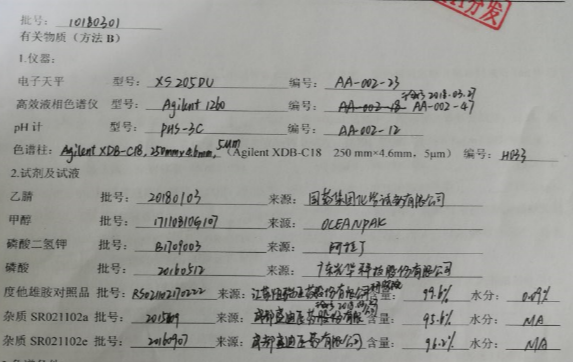 分发
批号: 10180301
有关物质（方法 B）
1.仪器:
电子天平 型号: XS 205DU 编号: AA-002-23
2018.03.27
高效液相色谱仪 型号: Agilent 1260 编号: AA-002-18 AA-002-47
pH 计 型号: pHS-3C 编号: AA-002-12
色谱柱: Agilent XDB-C18, 250mm×4.6mm, 5μm （Agilent XDB-C18 250 mm×4.6mm，5μm） 编号: H033
2.试剂及试液
乙腈 批号: 20180103 来源: 国药集团化学试剂有限公司
甲醇 批号: 17110810G107 来源: OCEANPAK
磷酸二氢钾 批号: B1709003 来源: 阿拉丁
磷酸 批号: 20160512 来源: 广东光华科技股份有限公司
度他雄胺对照品 批号: RS021102170222 来源: 含量: 99.6% 水分: 0.09%
杂质 SR021102a 批号: 来源: 含量: 95.6% 水分: NA
杂质 SR021102c 批号: 20160907 来源: 含量: 96.2% 水分: NA